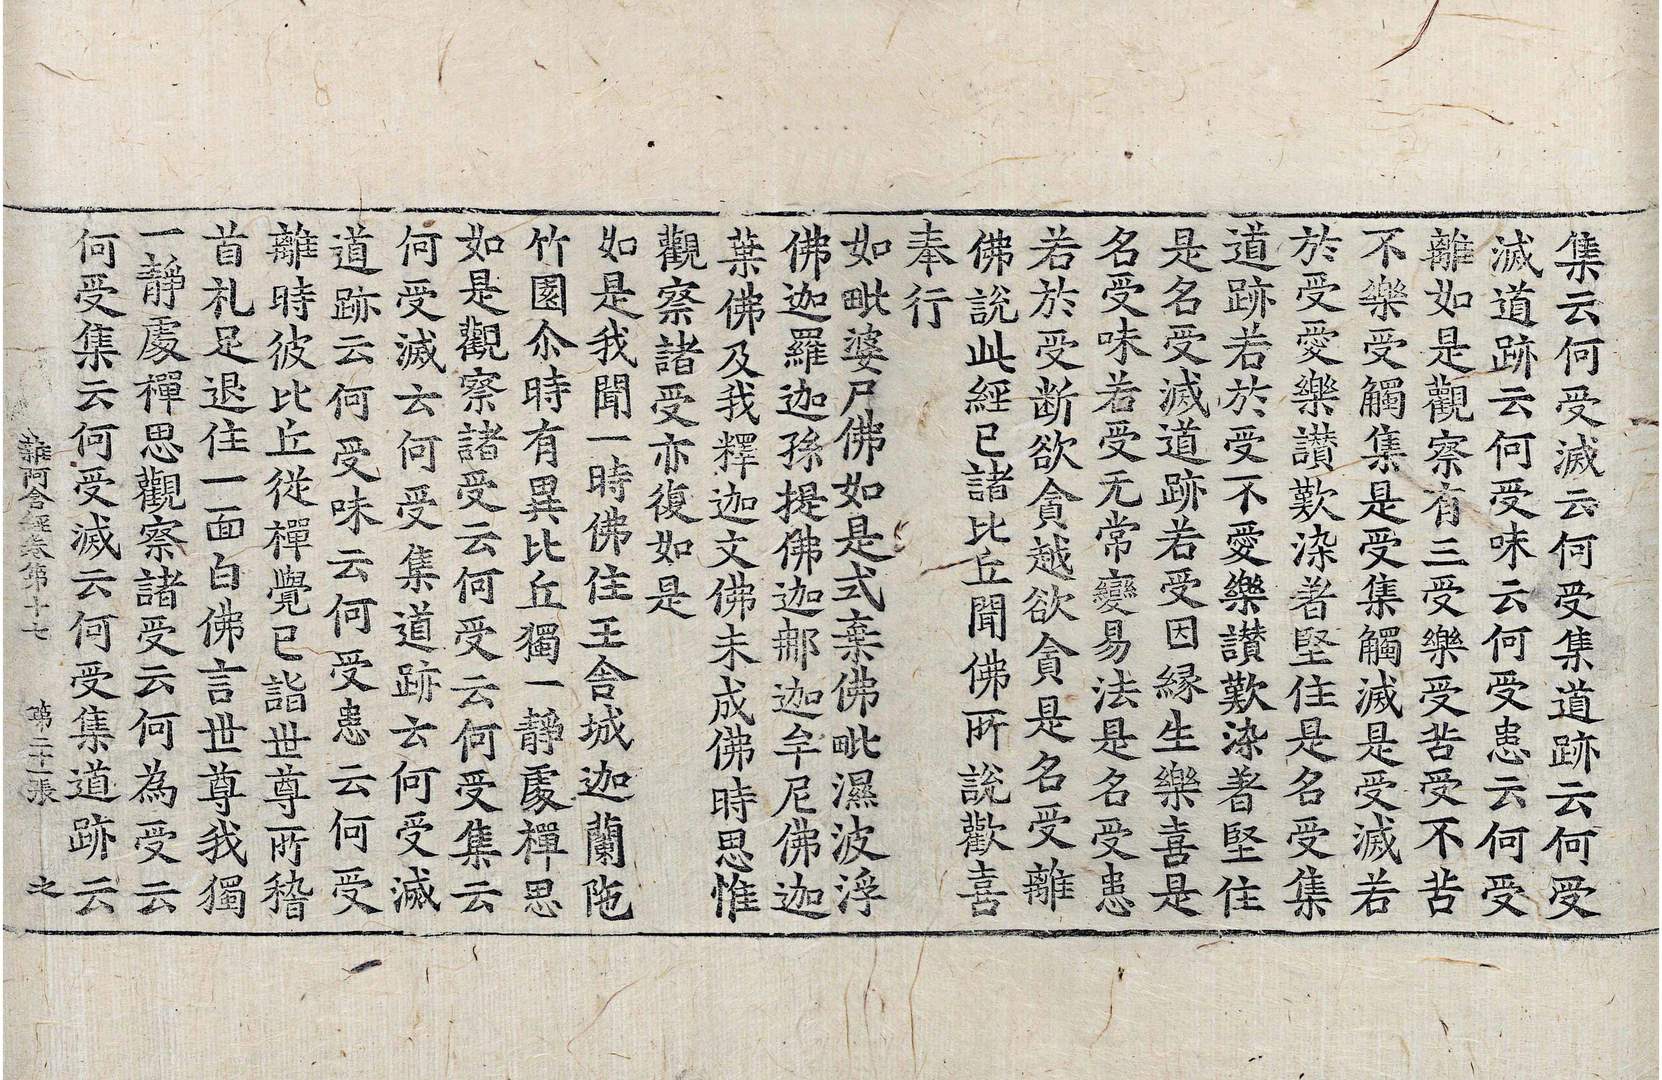 集云何受滅云何受集道跡云何受
滅道跡云何受味云何受患云何受
離如是觀察有三受樂受苦受不苦
不樂受觸集是受集觸滅是受滅若
於受愛樂讃歎染著堅住是名受集
道跡若於受不愛樂讃歎染著堅住
是名受滅道跡若受因縁生樂喜是
名受味若受无常變易法是名受患
若於受断欲貪越欲貪是名受離
佛說此經已諸比丘聞佛所說歡喜
奉行
如毗婆尸佛如是式棄佛毗濕波浮
佛迦羅迦孫提佛迦那迦牟尼佛迦
葉佛及我釋迦文佛未成佛時思惟
觀察諸受亦復如是
如是我聞一時佛住王舍城迦蘭陁
竹園尒時有異比丘獨一靜處禪思
如是觀察諸受云何受云何受集云
何受滅云何受集道跡云何受滅
道跡云何受味云何受患云何受
離時彼比丘從禪覺已詣世尊所稽
首礼足退住一面白佛言世尊我獨
一靜處禪思觀察諸受云何為受云
何受集云何受滅云何受集道跡云
雜阿含經卷第十七 第二十一張 之